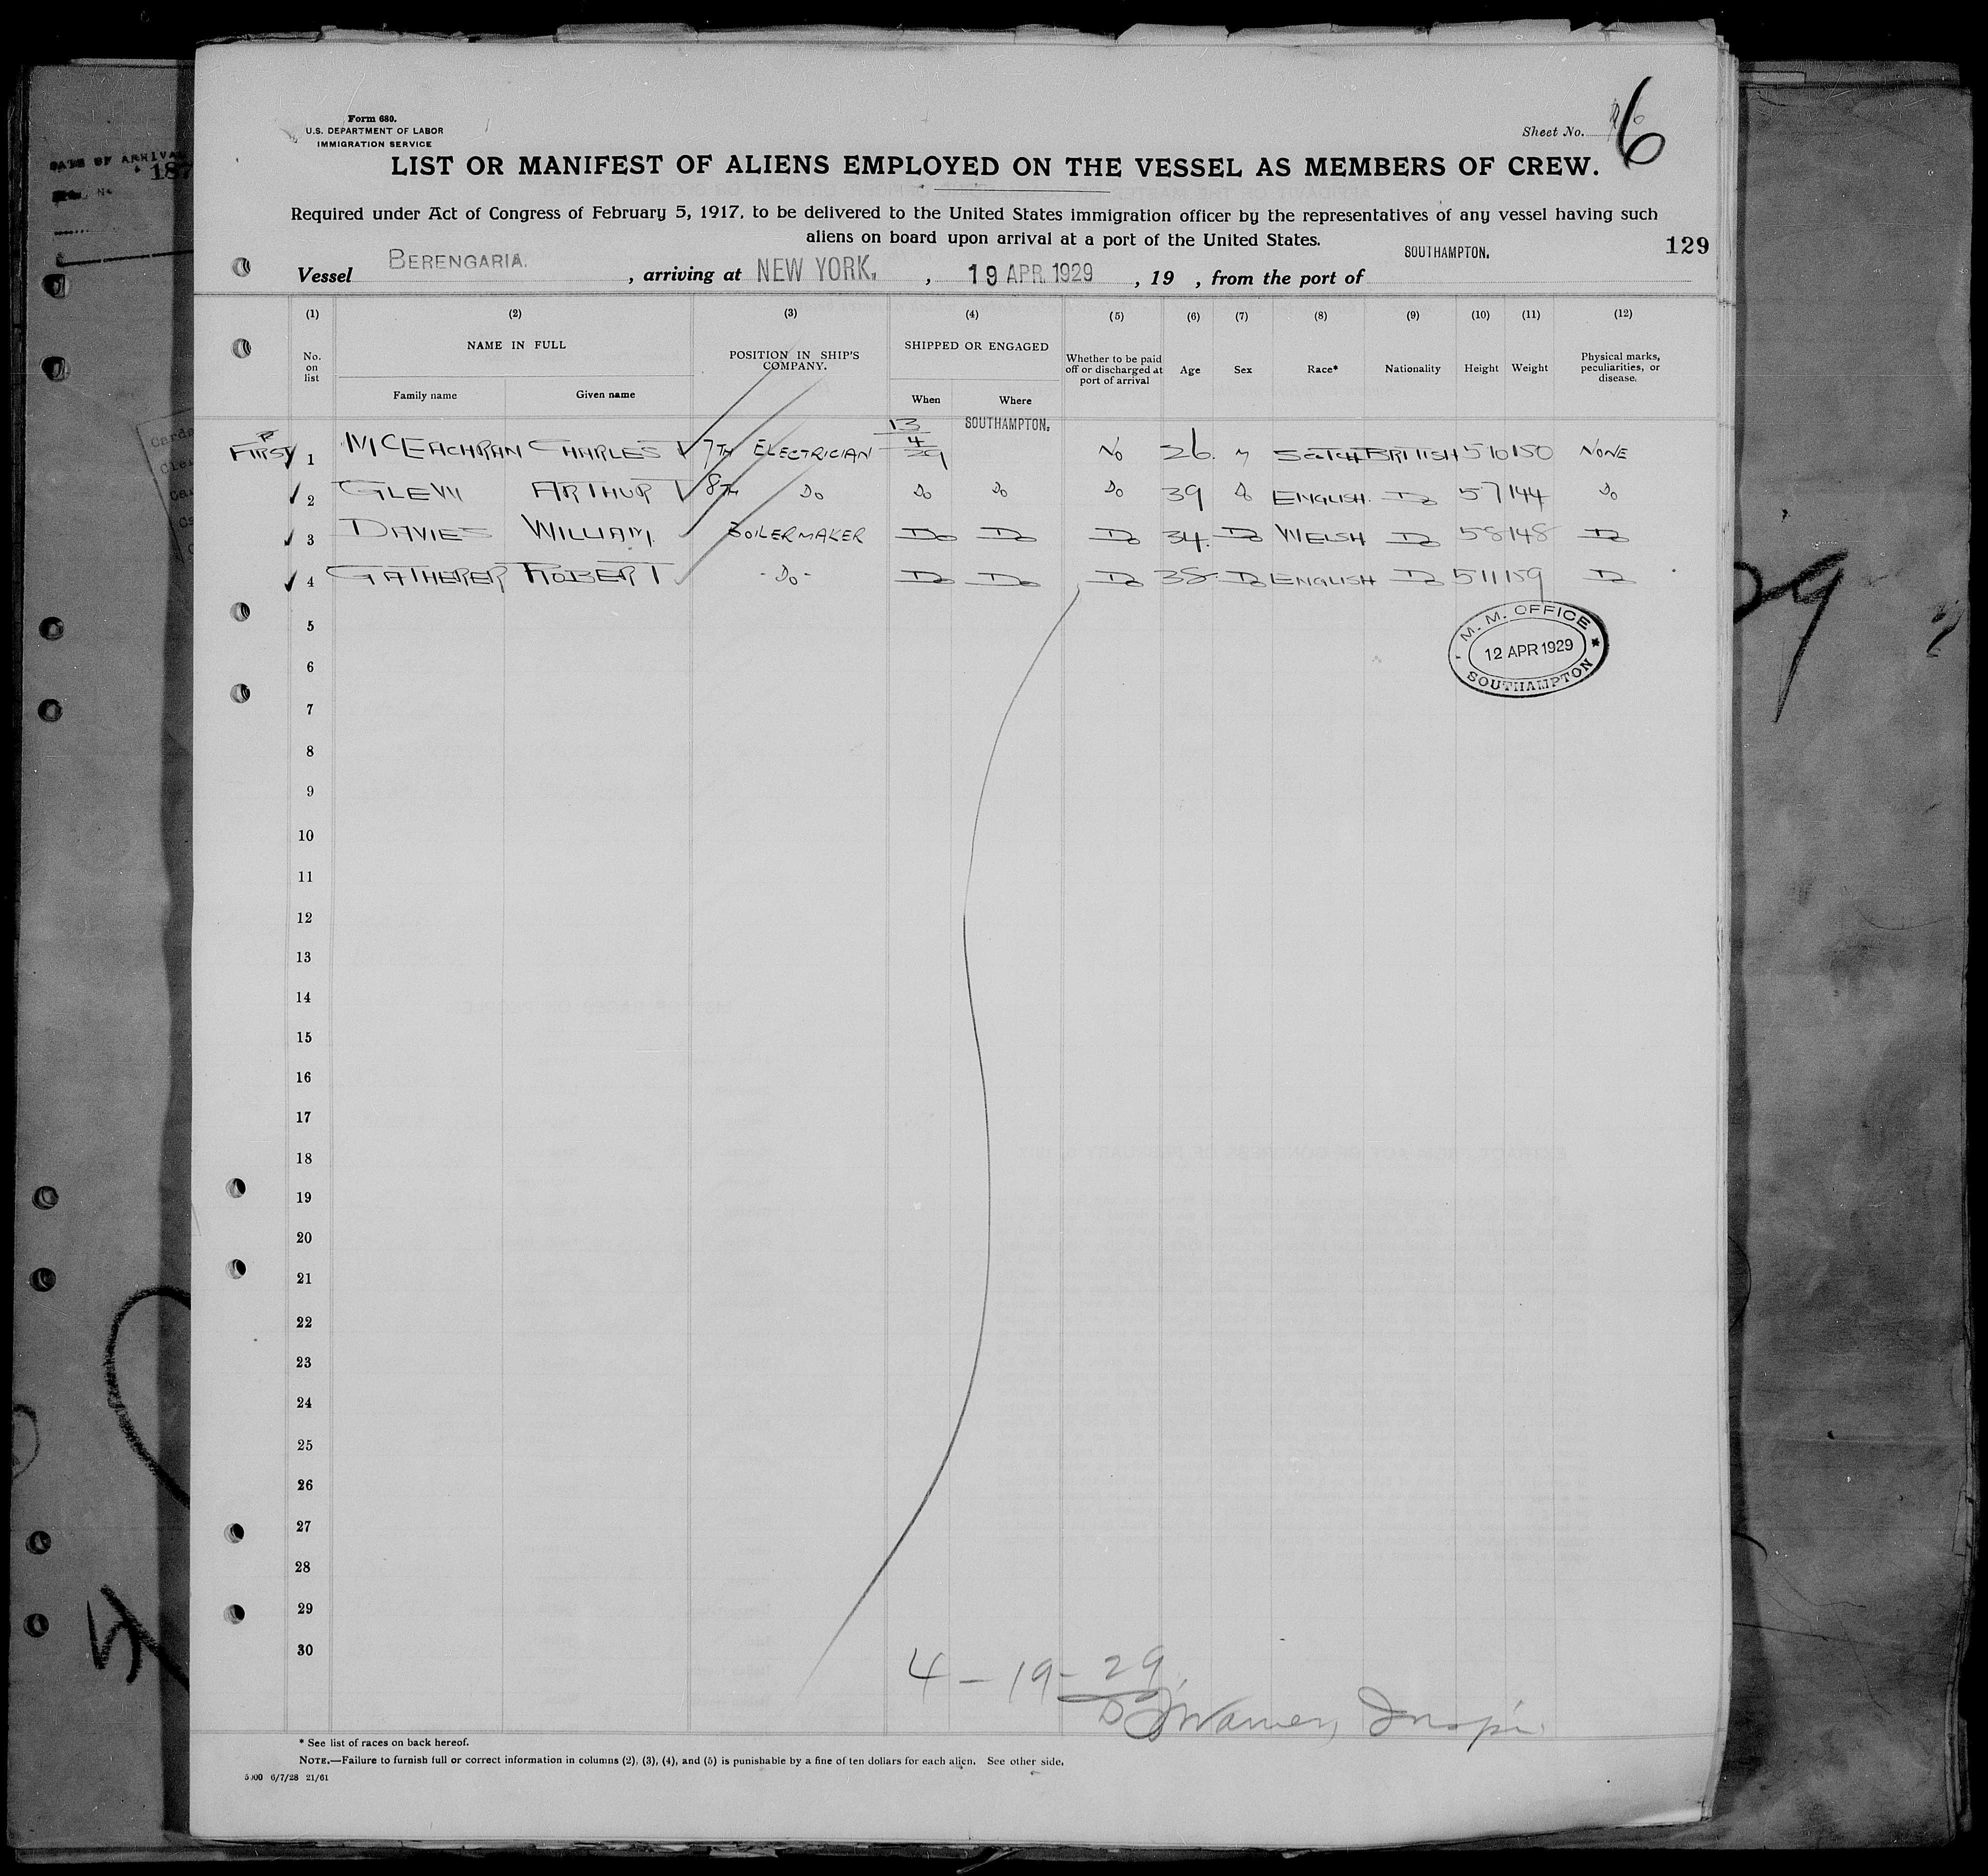 Form 680.
U.S. DEPARTMENT OF LABOR
IMMIGRATION SERVICE
Sheet No. 6
LIST OR MANIFEST OF ALIENS EMPLOYED ON THE VESSEL AS MEMBERS OF CREW.
Required under Act of Congress of February 5, 1917, to be delivered to the United States immigration officer by the representatives of any vessel having such
aliens on board upon arrival at a port of the United States.
129
Vessel BERENGARIA. , arriving at NEW YORK. , 19 APR. 1929 , 19 , from the port of SOUTHAMPTON.
(1) (2) (3) (4) (5) (6) (7) (8) (9) (10) (11) (12)
No. on list NAME IN FULL POSITION IN SHIP'S COMPANY. SHIPPED OR ENGAGED Whether to be paid off or discharged at port of arrival Age Sex Race* Nationality Height Weight Physical marks, peculiarities, or disease.
Family name Given name When Where
FIRST 1 MCEACHRAN CHARLES 7TH ELECTRICIAN 13/4/29 SOUTHAMPTON. NO 26. M SCOTCH BRITISH 5 10 150 NONE
2 GLENN ARTHUR 8TH DO DO DO DO 39 DO ENGLISH. DO 5 7 144 DO
3 DAVIES WILLIAM. BOILERMAKER DO DO DO 34. DO WELSH DO 5 8 148 DO
4 GATHERER ROBERT -DO- DO DO DO 38. DO ENGLISH DO 5 11 159 DO
5
M. M. OFFICE
12 APR 1929
SOUTHAMPTON
6
7
8
9
10
11
12
13
14
15
16
17
18
19
20
21
22
23
24
25
26
27
28
29
30
4-19-29
* See list of races on back hereof.
NOTE.—Failure to furnish full or correct information in columns (2), (3), (4), and (5) is punishable by a fine of ten dollars for each alien. See other side.
5000 6/7/28 21/61